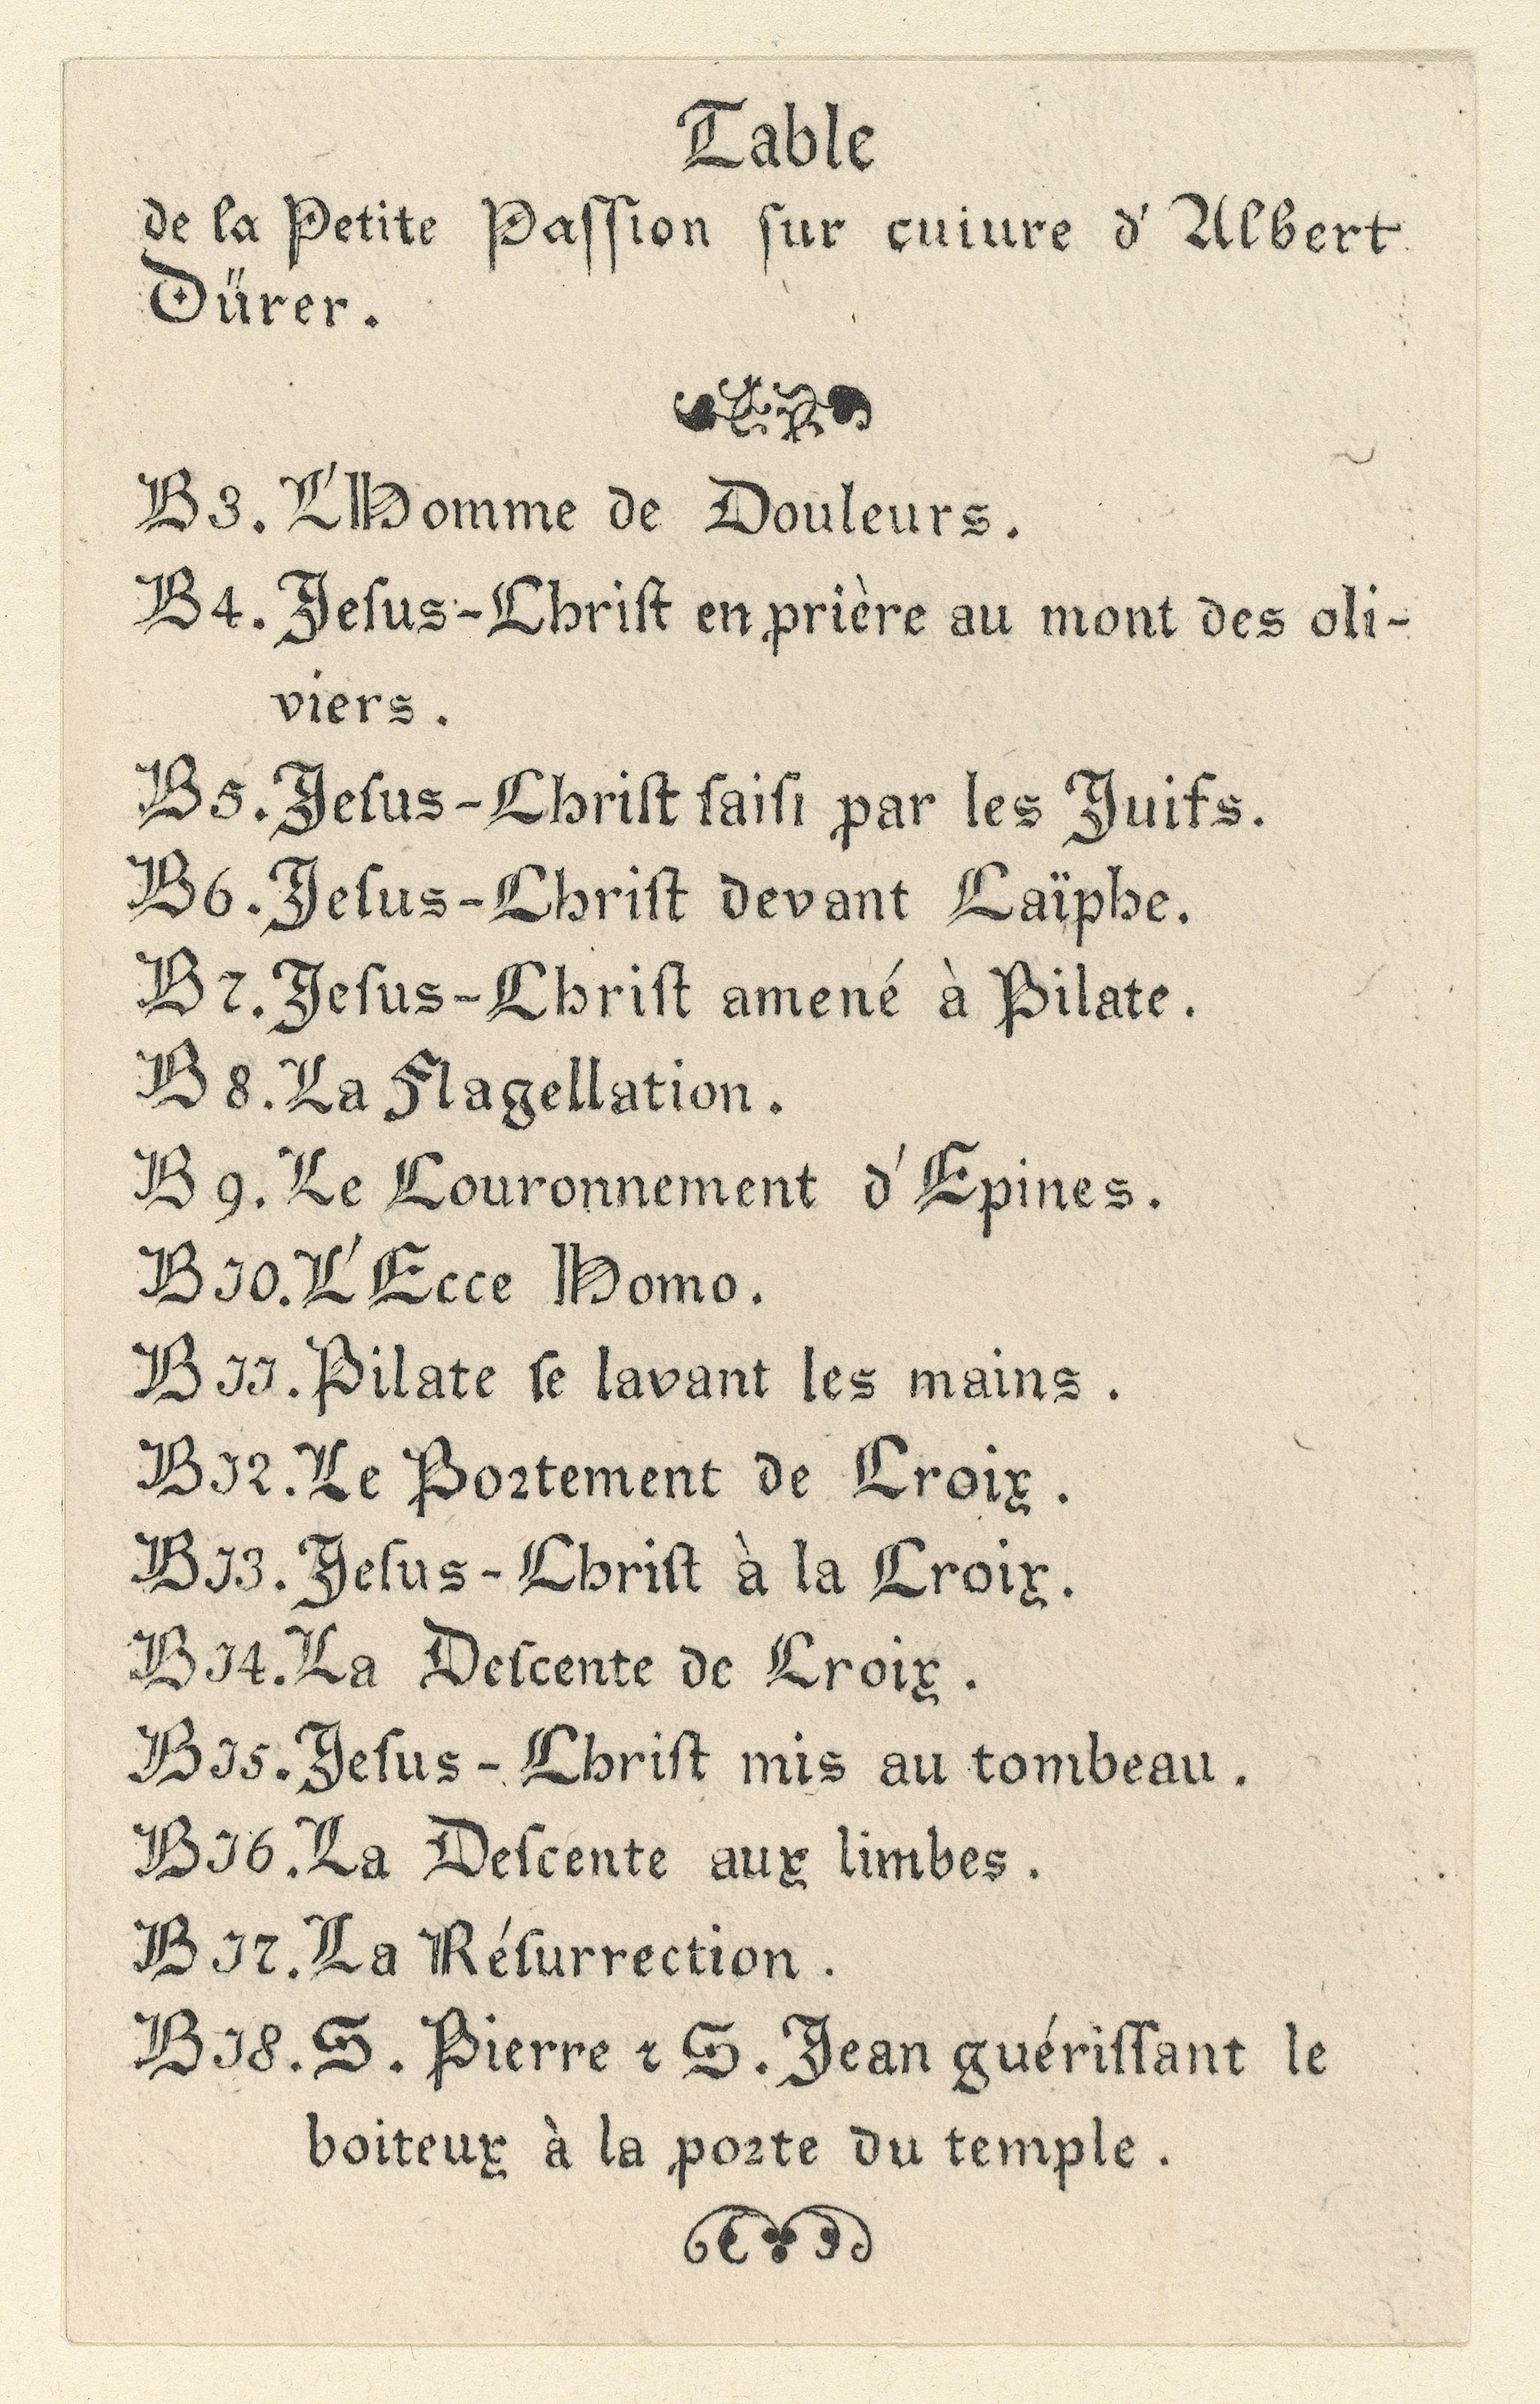 Table
de la Petite Paſſion ſur cuiure d' Albert
Dürer.
B3. L'Homme de Douleurs.
B4. Jeſus-Chriſt en prière au mont des oli-
viers.
B5. Jeſus-Chriſt ſaiſi par les Juifs.
B6. Jeſus-Chriſt devant Caïphe.
B7. Jeſus-Chriſt amené à Pilate.
B8. La Flagellation.
B9. Le Couronnement d'Epines.
B10. L'Ecce Homo.
B11. Pilate ſe lavant les mains.
B12. Le Poꝛtement de Croix.
B13. Jeſus-Chriſt à la Croix.
B14. La Deſcente de Croix.
B15. Jeſus-Chriſt mis au tombeau.
B16. La Deſcente aux limbes.
B17. La Réſurrection.
B18. S. Pierre & S. Jean guériſſant le
boiteux à la poꝛte du temple.